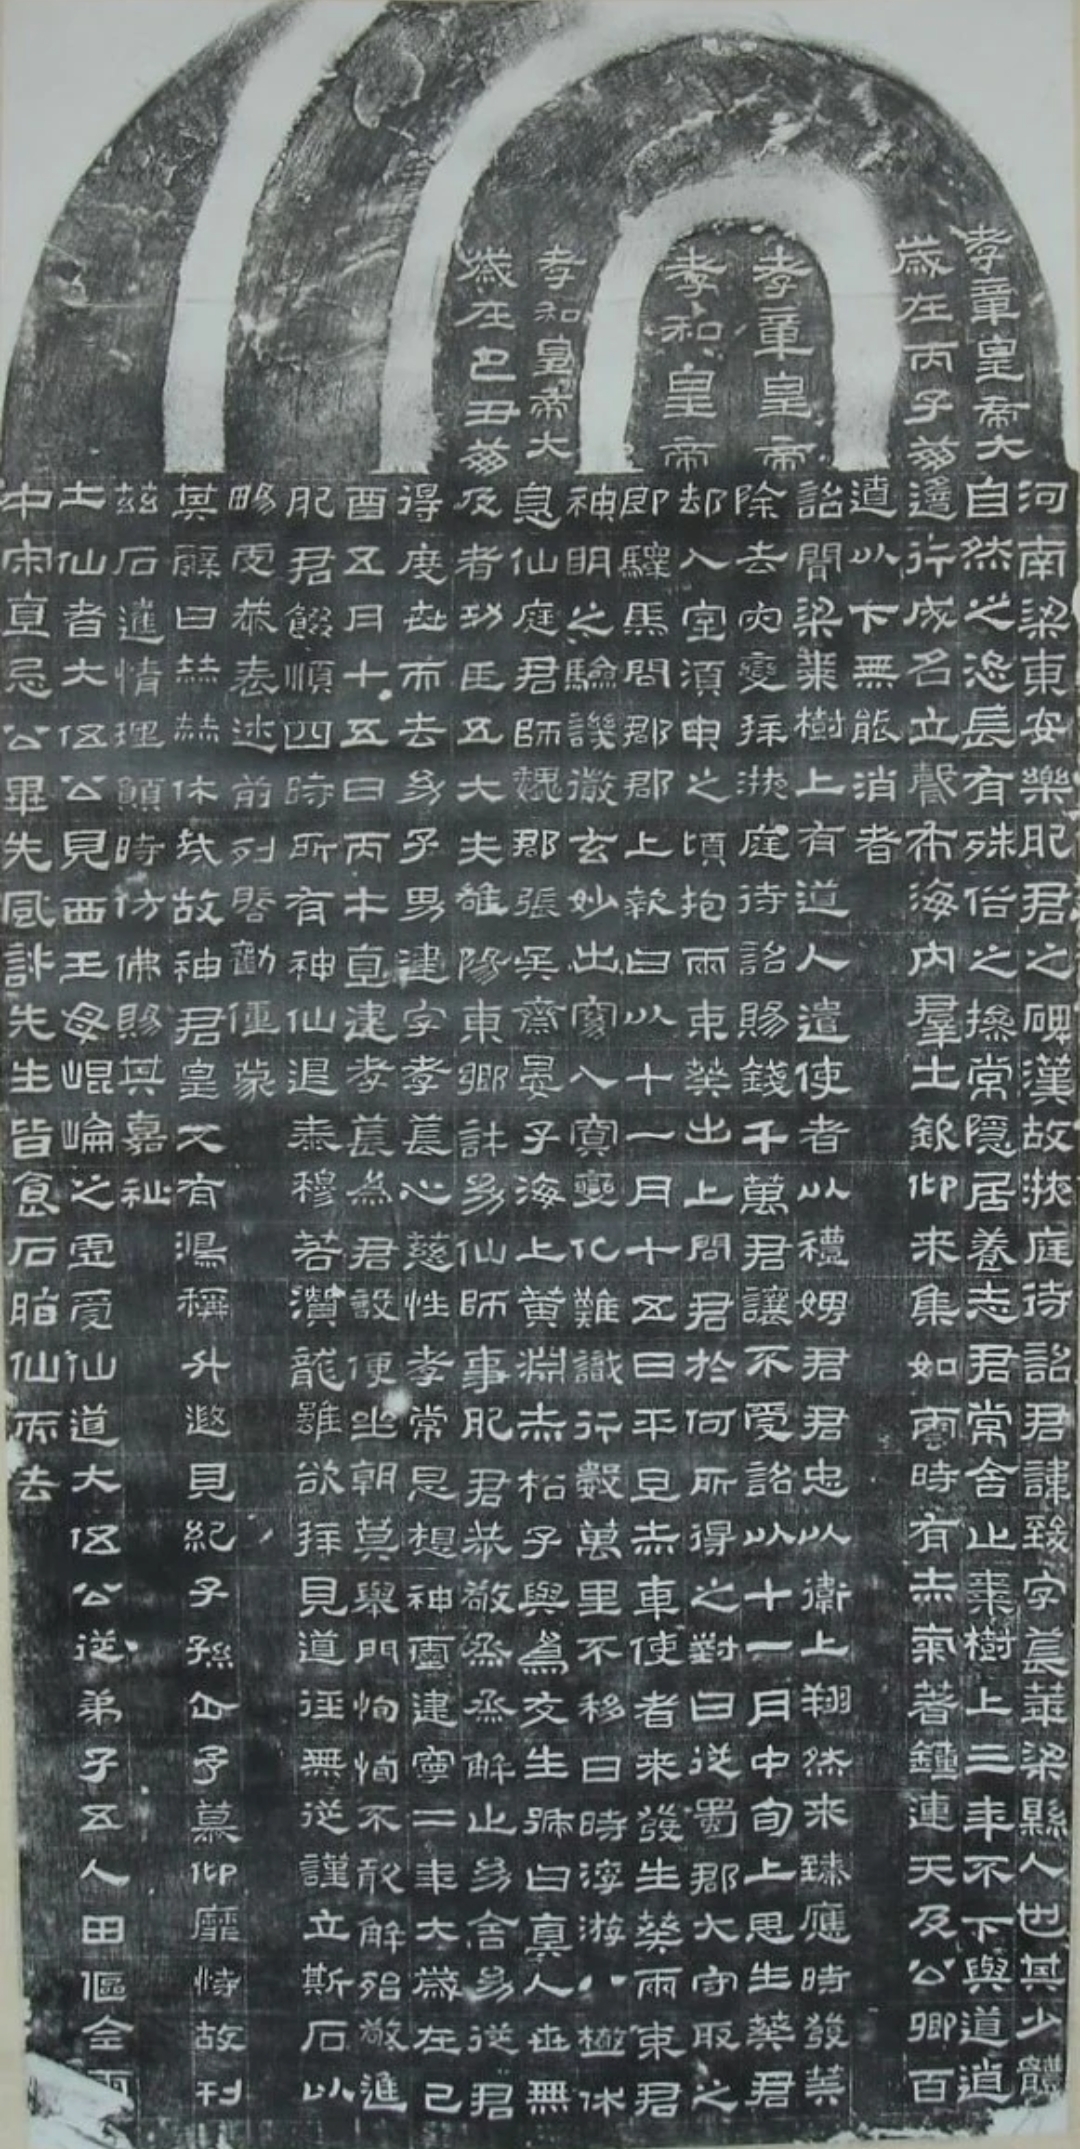 孝章皇帝大
歲在丙子崩
孝章皇帝
孝和皇帝
孝和皇帝大
歲在己丑崩
河南梁東安樂肥君之碑漢故掖庭待詔君諱致字萇華梁縣人也其少體
自然之恣長有殊俗之操常隱居養志君常舍止棗樹上三年不下與道逍
遙行成名立聲布海內群士欽仰來集如雲時有赤氣著鐘連天及公卿百
遼以下無能消者
詔聞梁棗樹上有道人遣使者以禮娉君君忠以衛上翔然來臻應時發筭
除去灾變拜掖庭待詔賜錢千萬君讓不受詔以十一月中旬上思生葵君
却入室須臾之頃抱兩束葵出上問君於何所得之對曰從蜀郡大守取之
即驛馬問郡郡上報曰以十一月十五日平旦赤車使者來發生葵兩束君
神明之驗譏徹玄妙出窈入冥變化難識行數萬里不移日時浮游八極休
息仙庭君師魏郡張吳齋晏子海上黃淵赤松子與為友生號曰真人世無
及者功臣五大夫雒陽東鄉許幼仙師事肥君恭敬烝烝解止幼舍幼從君
得度世而去幼子男建字孝萇心慈性孝常思想神靈建寧二年大歲在己
酉五月十五日丙午直建孝萇為君設便坐朝莫舉門恂恂不敢解殆敬進
肥君餟順四時所有神仙退泰穆若潛龍雖欲拜見道徑無從謹立斯石以
暢虔恭表述前列啓勸僮蒙
其辭曰赫赫休哉故神君皇又有鴻稱升遐見紀子孫企予慕仰靡恃故刊
茲石達情理願時仿佛賜其嘉祉
土仙者大伍公見西王母崐崘之虛受仙道大伍公從弟子五人田傴全雨
中宋直忌公畢先風許先生皆食石脂仙而去